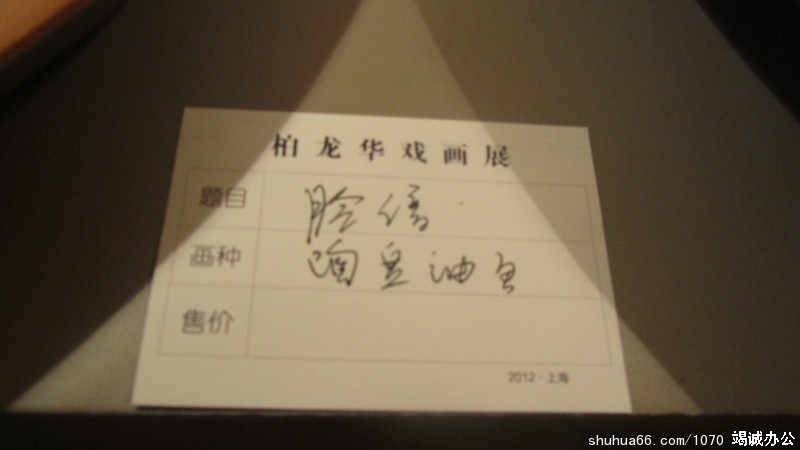 柏龙华戏画展
题目 脸谱
画种 陶皿油色
售价
2012·上海
shuhua66.com/1070 竭诚办公